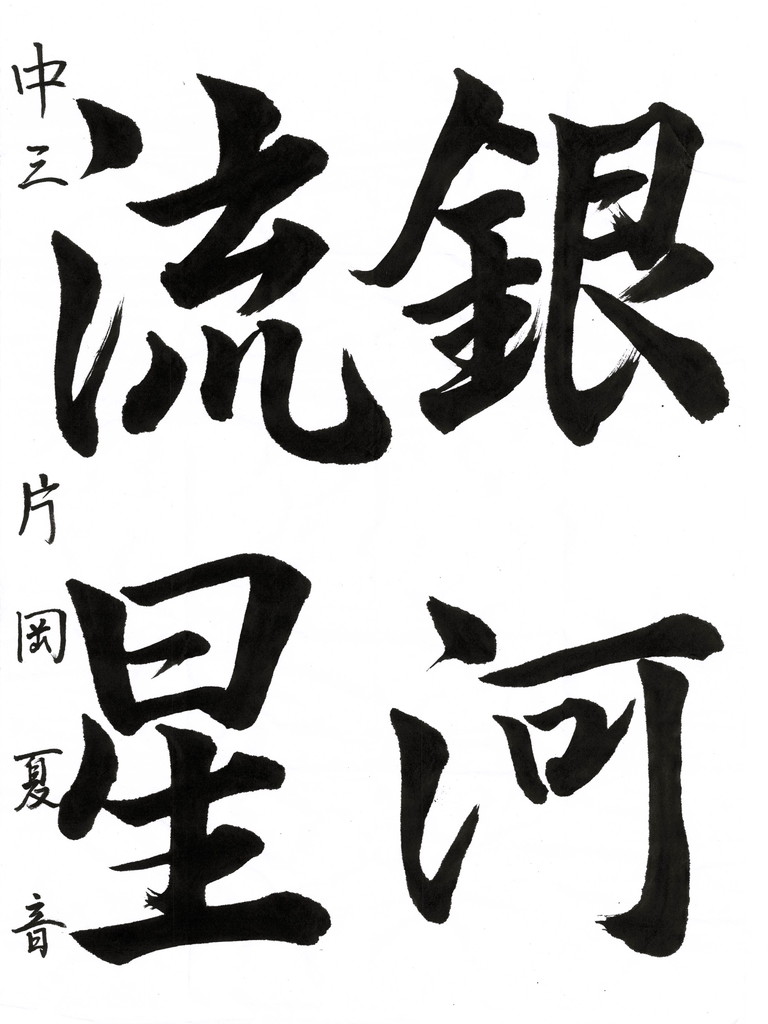 銀河
流星
中三 片岡夏音